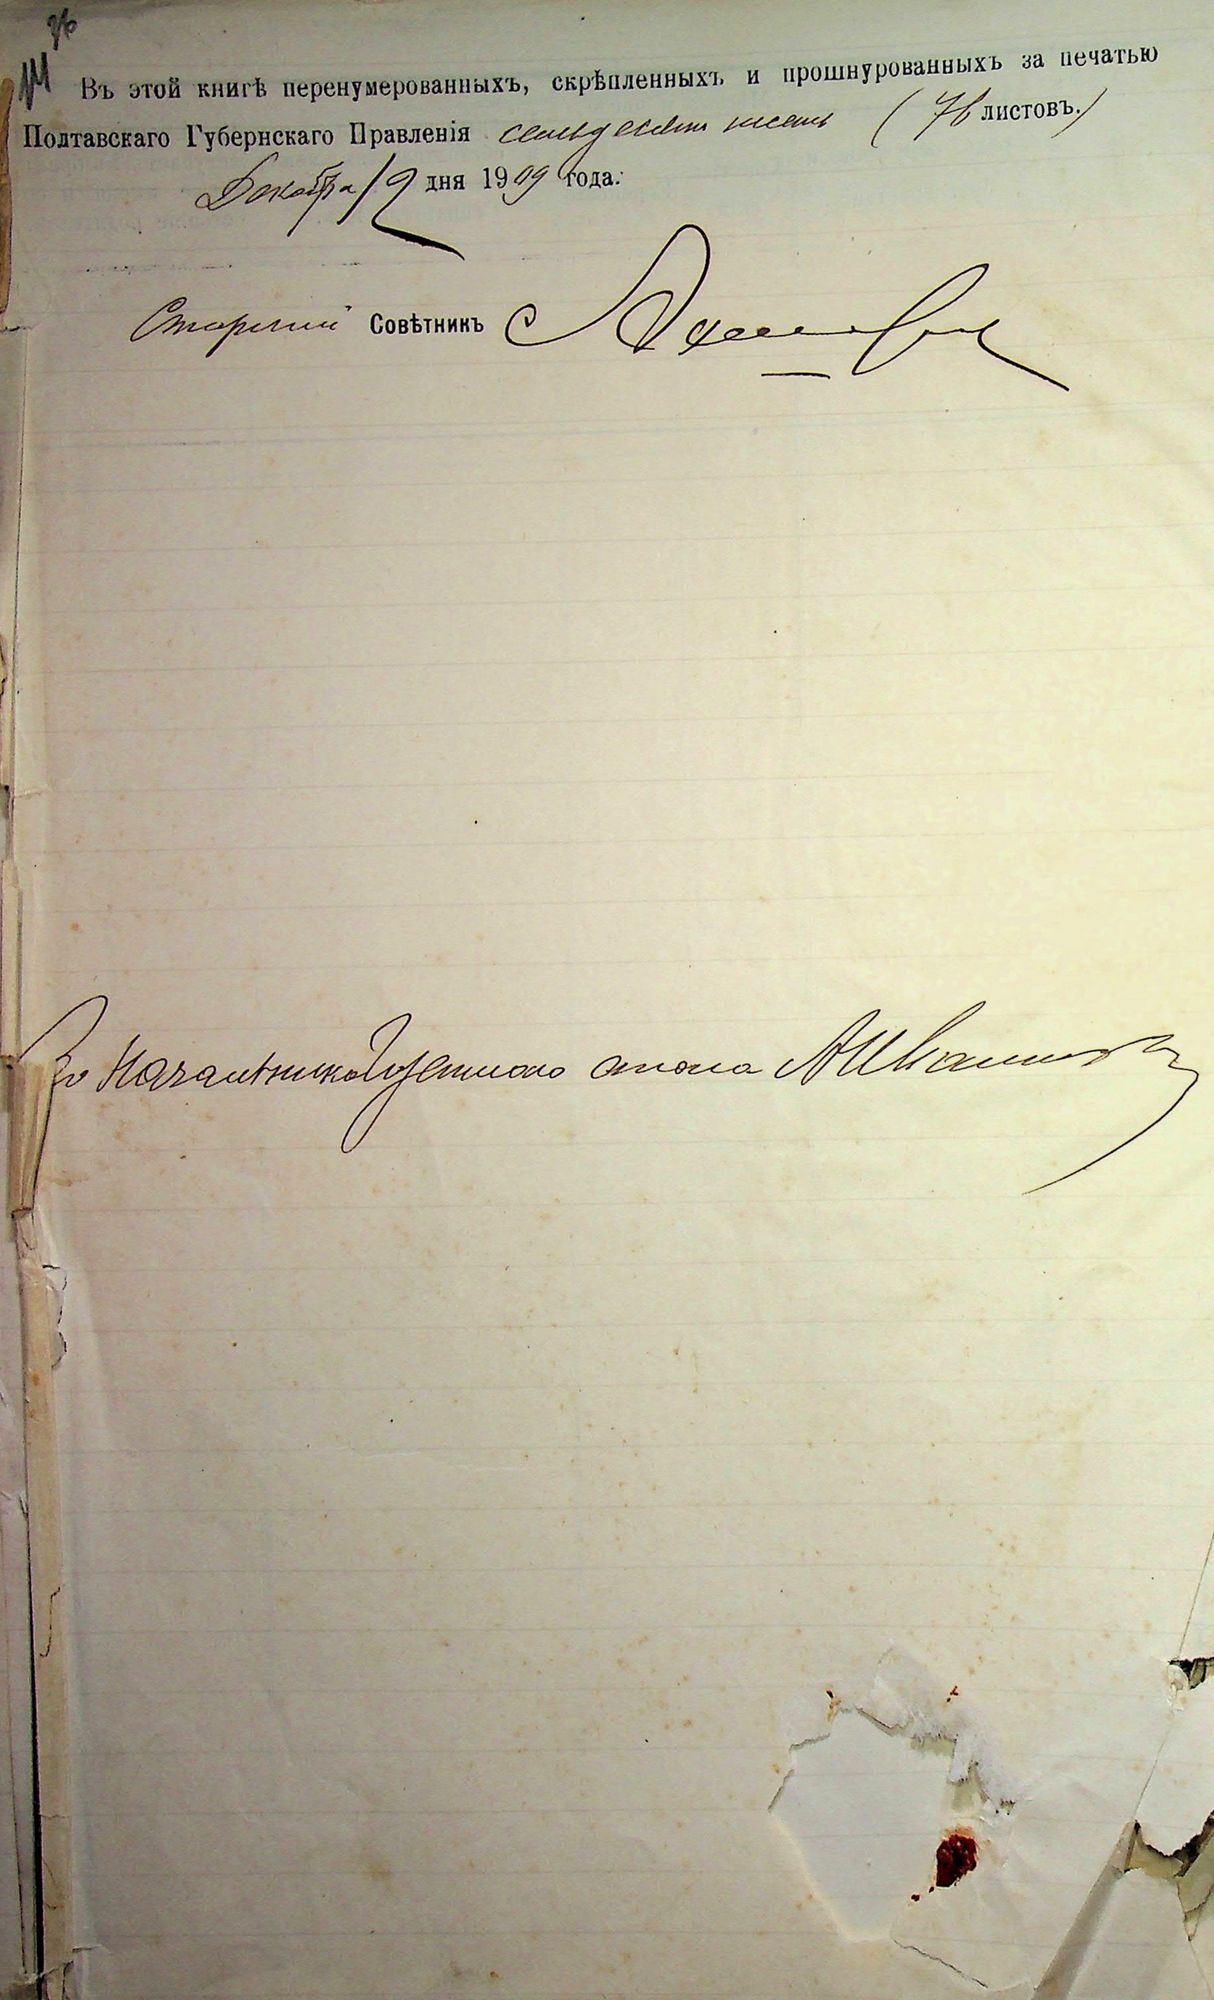 76
Въ этой книгѣ перенумерованныхъ, скрѣпленныхъ и прошнурованныхъ за печатью
Полтавскаго Губернскаго Правленія семьдесятъ шесть (76 листовъ.)
Декабря 12 дня 1909 года.
Старшій Совѣтникъ
За Начальника Счетнаго стола А Иваненко